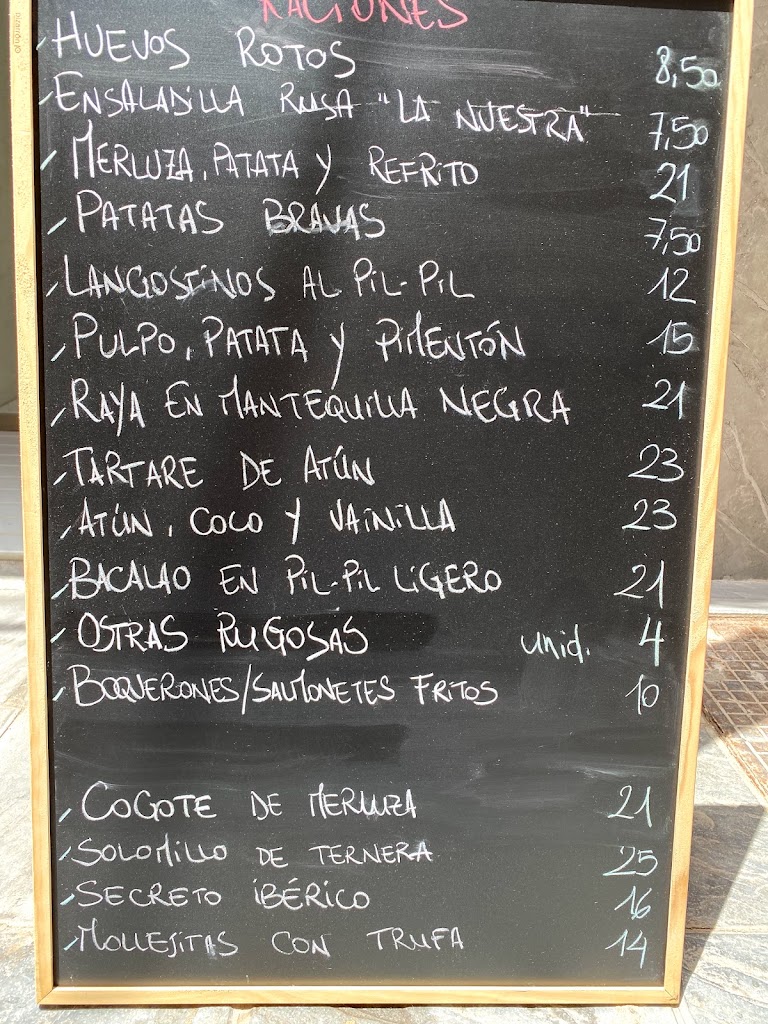 RACIONES
HUEVOS ROTOS 8,50
ENSALADILLA RUSA "LA NUESTRA" 7,50
MERLUZA, PATATA Y REFRITO 21
PATATAS BRAVAS 7,50
LANGOSTINOS AL PIL-PIL 12
PULPO, PATATA Y PIMENTÓN 15
RAYA EN MANTEQUILLA NEGRA 21
TARTARE DE ATÚN 23
ATÚN, COCO Y VAINILLA 23
BACALAO EN PIL-PIL LIGERO 21
OSTRAS RUGOSAS unid. 4
BOQUERONES/SALMONETES FRITOS 10
COGOTE DE MERLUZA 21
SOLOMILLO DE TERNERA 25
SECRETO IBÉRICO 16
MOLLEJITAS CON TRUFA 14